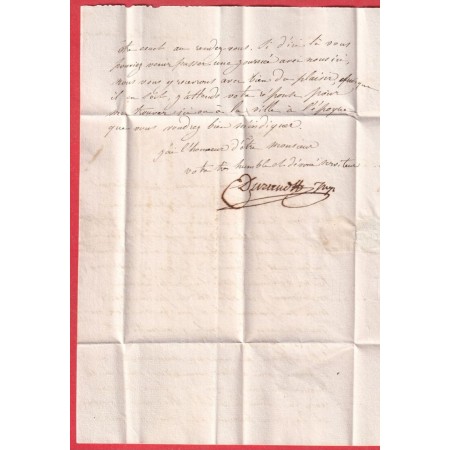 de cent au rendez-vous. Si d'ici là vous
pouviez venir passer une journée avec nous ici,
nous vous y verrons avec bien du plaisir
il en soit, j'attends votre réponse pour
me trouver à la ville à l'époque
que vous voudrez bien m'indiquer.
j'ai l'honneur d'être monsieur
votre très humble et dévoué serviteur